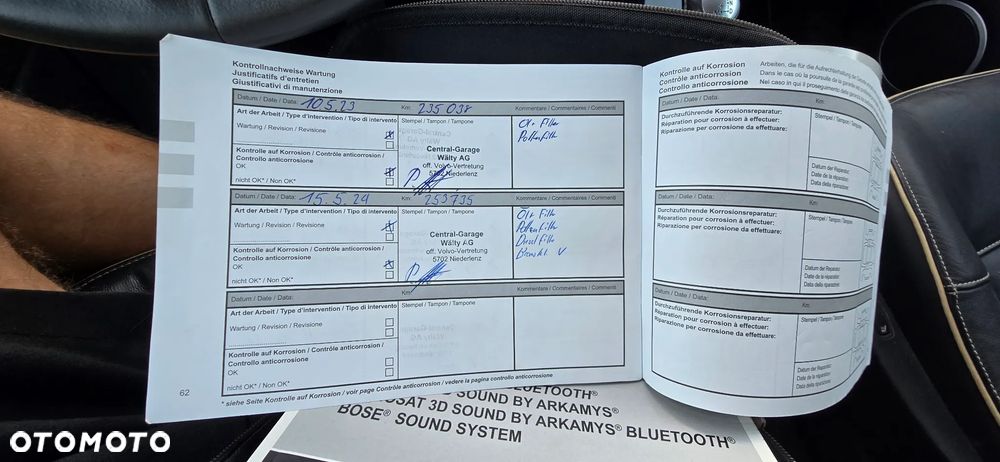 Kontrollnachweise Wartung
Justificatifs d'entretien
Giustificativi di manutenzione
Datum / Date / Data: 10.5.23 Km: 235 038 Kommentare / Commentaires / Commenti
Art der Arbeit / Type d'intervention / Tipo di intervento
Stempel / Tampon / Tampone
Wartung / Revision / Revisione
Kontrolle auf Korrosion / Contrôle anticorrosion /
Controllo anticorrosione
OK
nicht OK* / Non OK*
Central-Garage
Wälty AG
off. Volvo-Vertretung
5702 Niederlenz
Öl + Filter
Pollenfilter
Datum / Date / Data: 15.5.24 Km: 253735 Kommentare / Commentaires / Commenti
Art der Arbeit / Type d'intervention / Tipo di intervento
Stempel / Tampon / Tampone
Wartung / Revision / Revisione
Kontrolle auf Korrosion / Contrôle anticorrosion /
Controllo anticorrosione
OK
nicht OK* / Non OK*
Central-Garage
Wälty AG
off. Volvo-Vertretung
5702 Niederlenz
Öl + Filter
Pollenfilter
Dieselfilter
Datum / Date / Data: Km: Kommentare / Commentaires / Commenti
Art der Arbeit / Type d'intervention / Tipo di intervento
Stempel / Tampon / Tampone
Wartung / Revision / Revisione
Kontrolle auf Korrosion / Contrôle anticorrosion /
Controllo anticorrosione
OK
nicht OK* / Non OK*
* siehe Seite Kontrolle auf Korrosion / voir page Contrôle anticorrosion / vedere la pagina controllo anticorrosione
62
Kontrolle auf Korrosion
Contrôle anticorrosion
Controllo anticorrosione
Arbeiten, die für die Aufrechterhaltung der
Dans le cas où la poursuite de la garantie
Nel caso in cui il proseguimento della
Datum / Date / Data: Km:
Durchzuführende Korrosionsreparatur:
Réparation pour corrosion à effectuer:
Riparazione per corrosione da effettuare:
Stempel / Tampon / Tampone:
Datum der Reparatur:
Date de la réparation:
Data della riparazione:
Datum / Date / Data: Km:
Durchzuführende Korrosionsreparatur:
Réparation pour corrosion à effectuer:
Riparazione per corrosione da effettuare:
Stempel / Tampon / Tampone:
Datum der Reparatur:
Date de la réparation:
Data della riparazione:
Datum / Date / Data: Km:
Durchzuführende Korrosionsreparatur:
Réparation pour corrosion à effectuer:
Riparazione per corrosione da effettuare:
Stempel / Tampon / Tampone:
Datum der Reparatur:
Date de la réparation:
Data della riparazione:
BLUETOOTH®
SOUND BY ARKAMYS®
3D SOUND BY ARKAMYS® BLUETOOTH®
BOSE® SOUND SYSTEM
OTOMOTO